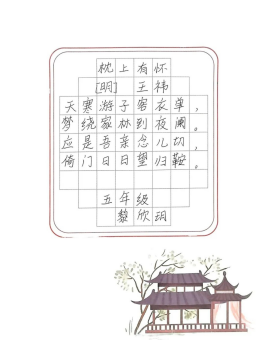 枕上有怀
[明] 王祎
天寒游子客衣单，
梦绕家林到夜阑。
应是吾亲念儿切，
倚门日日望归鞍。
五年级
黎欣玥